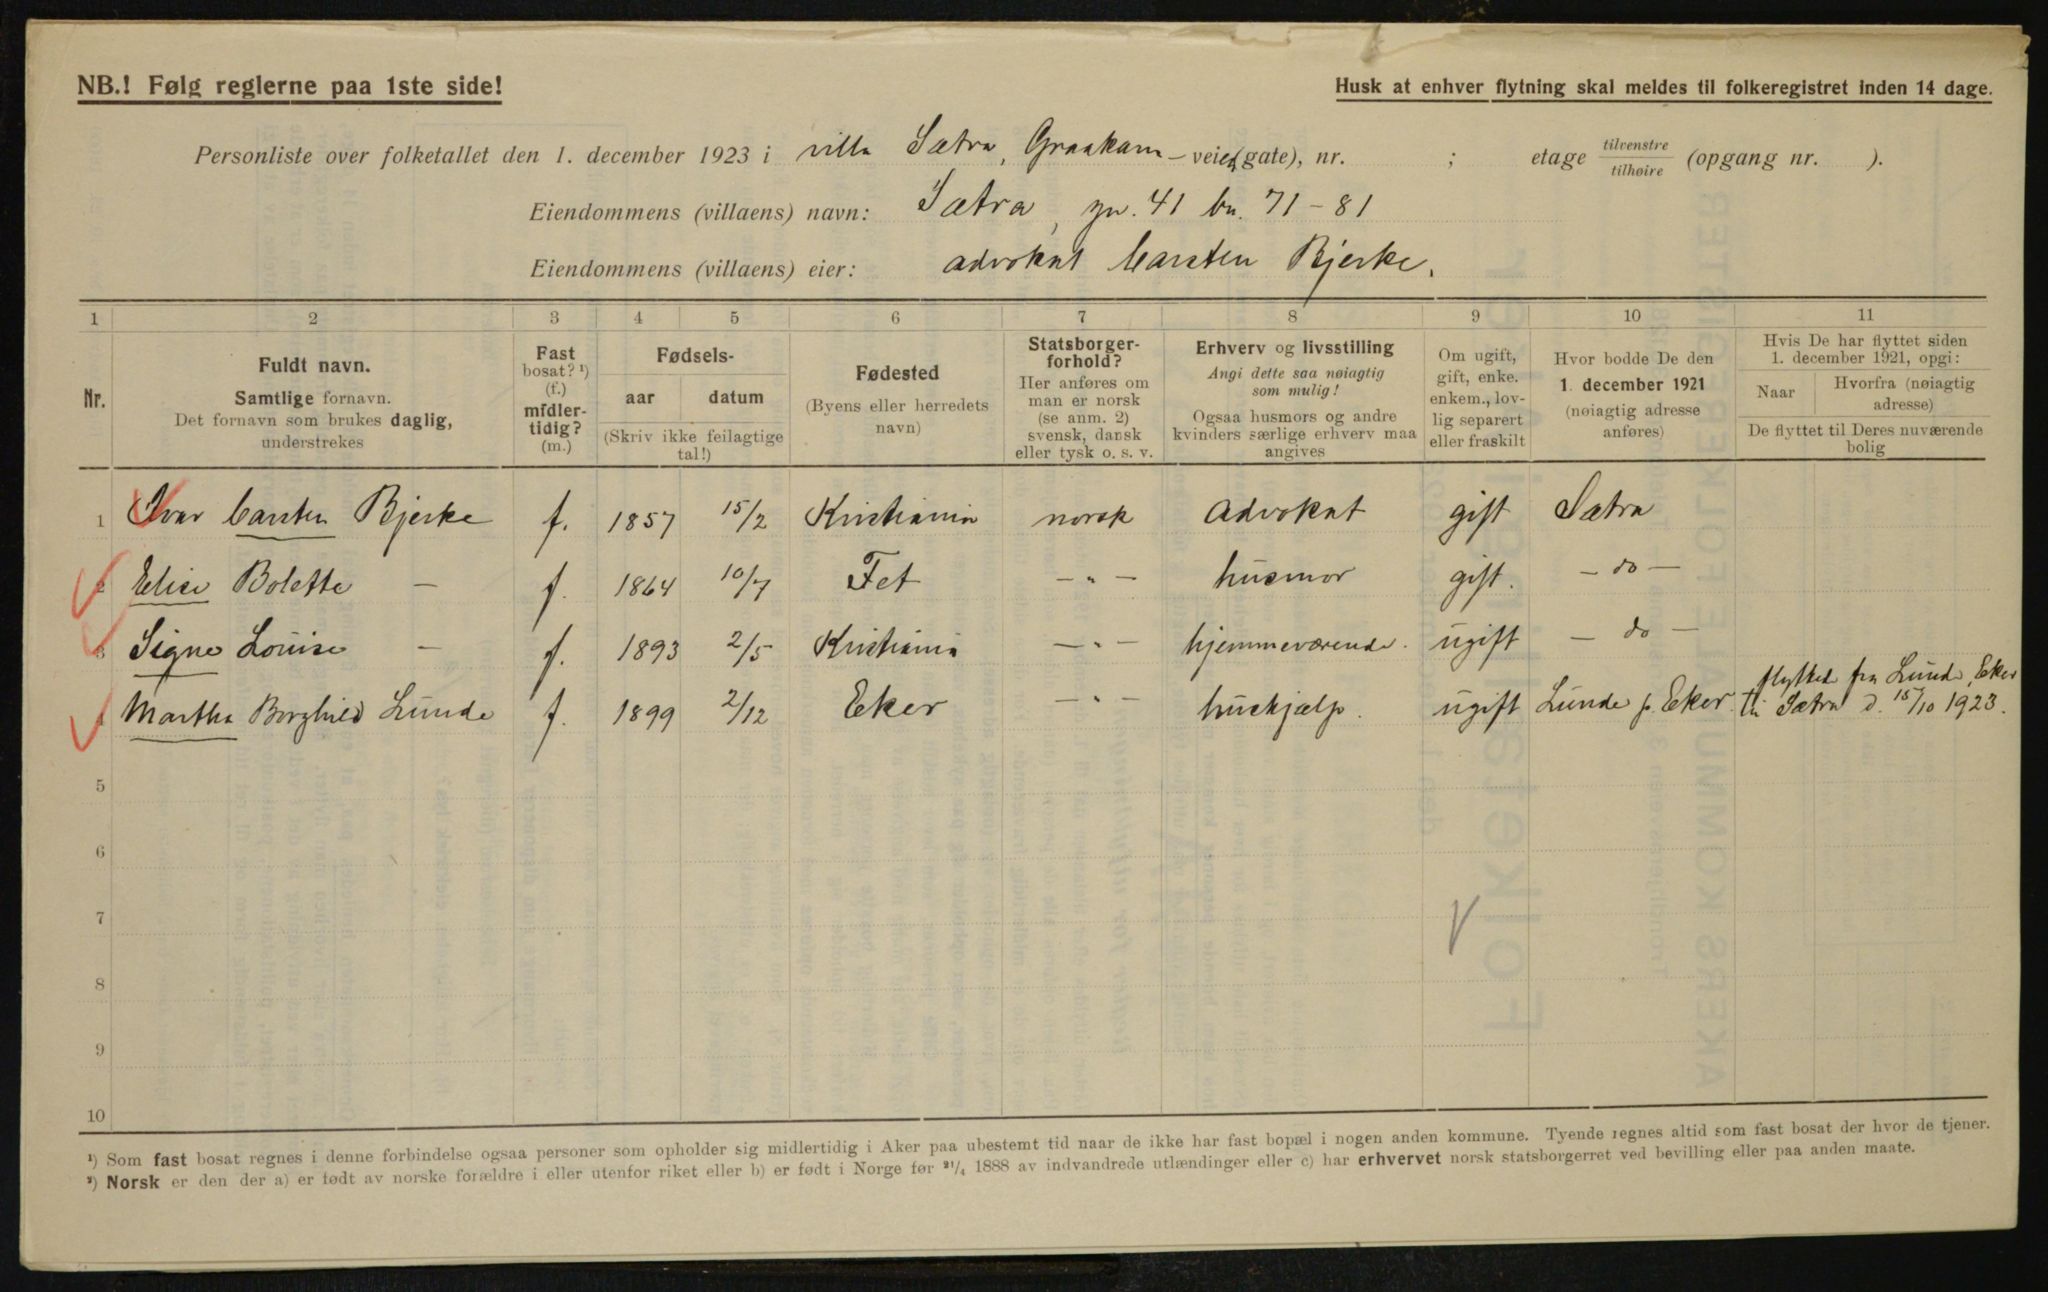 NB.! Følg reglerne paa 1ste side!
Husk at enhver flytning skal meldes til folkeregistret inden 14 dage.
Personliste over folketallet den 1. december 1923 i villa Sætra, Graakam-veien (gate), nr. ; etage tilvenstre/tilhøire (opgang nr. ).
Eiendommens (villaens) navn: Sætra, gn. 41 bn. 71-81
Eiendommens (villaens) eier: advokat Carsten Bjerke.
1 2 3 4 5 6 7 8 9 10 11
Nr.
Fuldt navn.
Samtlige fornavn.
Det fornavn som brukes daglig,
understrekes
Fast
bosat? ¹)
(f.)
midler-
tidig?
(m.)
Fødsels-
aar datum
(Skriv ikke feilagtige
tal!)
Fødested
(Byens eller herredets
navn)
Statsborger-
forhold?
Her anføres om
man er norsk
(se anm. 2)
svensk, dansk
eller tysk o. s. v.
Erhverv og livsstilling
Angi dette saa nøiagtig
som mulig!
Ogsaa husmors og andre
kvinders særlige erhverv maa
angives
Om ugift,
gift, enke.
enkem., lov-
lig separert
eller fraskilt
Hvor bodde De den
1. december 1921
(nøiagtig adresse
anføres)
Hvis De har flyttet siden
1. december 1921, opgi:
Naar
Hvorfra (nøiagtig
adresse)
De flyttet til Deres nuværende
bolig
1 Ivar Carsten Bjerke f. 1857 15/2 Kristiania norsk advokat gift Sætra
2 Elise Bolette — f. 1864 10/7 Fet — " — husmor gift. — do —
3 Signe Louise — f. 1893 2/5 Kristiania — " — hjemmeværende. ugift — do —
4 Martha Borghild Lunde f. 1899 2/12 Eker — " — huskjælp. ugift Lunde p. Eker. flyttet fra Lunde, Eker
til Sætra d. 15/10 1923.
5
6
7
8
9
10
¹) Som fast bosat regnes i denne forbindelse ogsaa personer som opholder sig midlertidig i Aker paa ubestemt tid naar de ikke har fast bopæl i nogen anden kommune. Tyende regnes altid som fast bosat der hvor de tjener.
²) Norsk er den der a) er født av norske forældre i eller utenfor riket eller b) er født i Norge før ²¹/₄ 1888 av indvandrede utlændinger eller c) har erhvervet norsk statsborgerret ved bevilling eller paa anden maate.